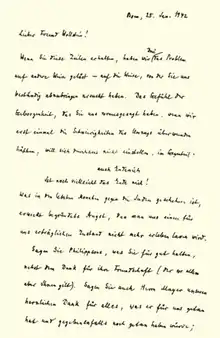 Bonn, 25. Jan. 1942
Lieber Freund Wollstein!
Wenn Sie diese Zeilen erhalten, haben wir Drei das Problem
auf andere Weise gelöst — auf die Weise, von der Sie uns
beständig abzubringen versucht haben. Das Gefühl der
Geborgenheit, das Sie uns vorausgesagt haben, wenn wir
erst einmal die Schwierigkeiten des Umzugs überwunden
hätten, will sich durchaus nicht einstellen, im Gegenteil:
auch Endenich
Ist noch vielleicht das Ende nich!
Was in den letzten Monaten gegen die Juden geschehen ist,
erweckt begründete Angst, dass man uns einen für
uns erträglichen Zustand nicht mehr erleben lassen wird.
Sagen Sie Philippsons, was Sie für gut halten,
nebst dem Dank für ihre Freundschaft (der vor allem
aber Ihnen gilt). Sagen Sie auch Herrn Mayer unseren
herzlichen Dank für alles, was er für uns getan
hat und gegebenenfalls noch getan haben würde;